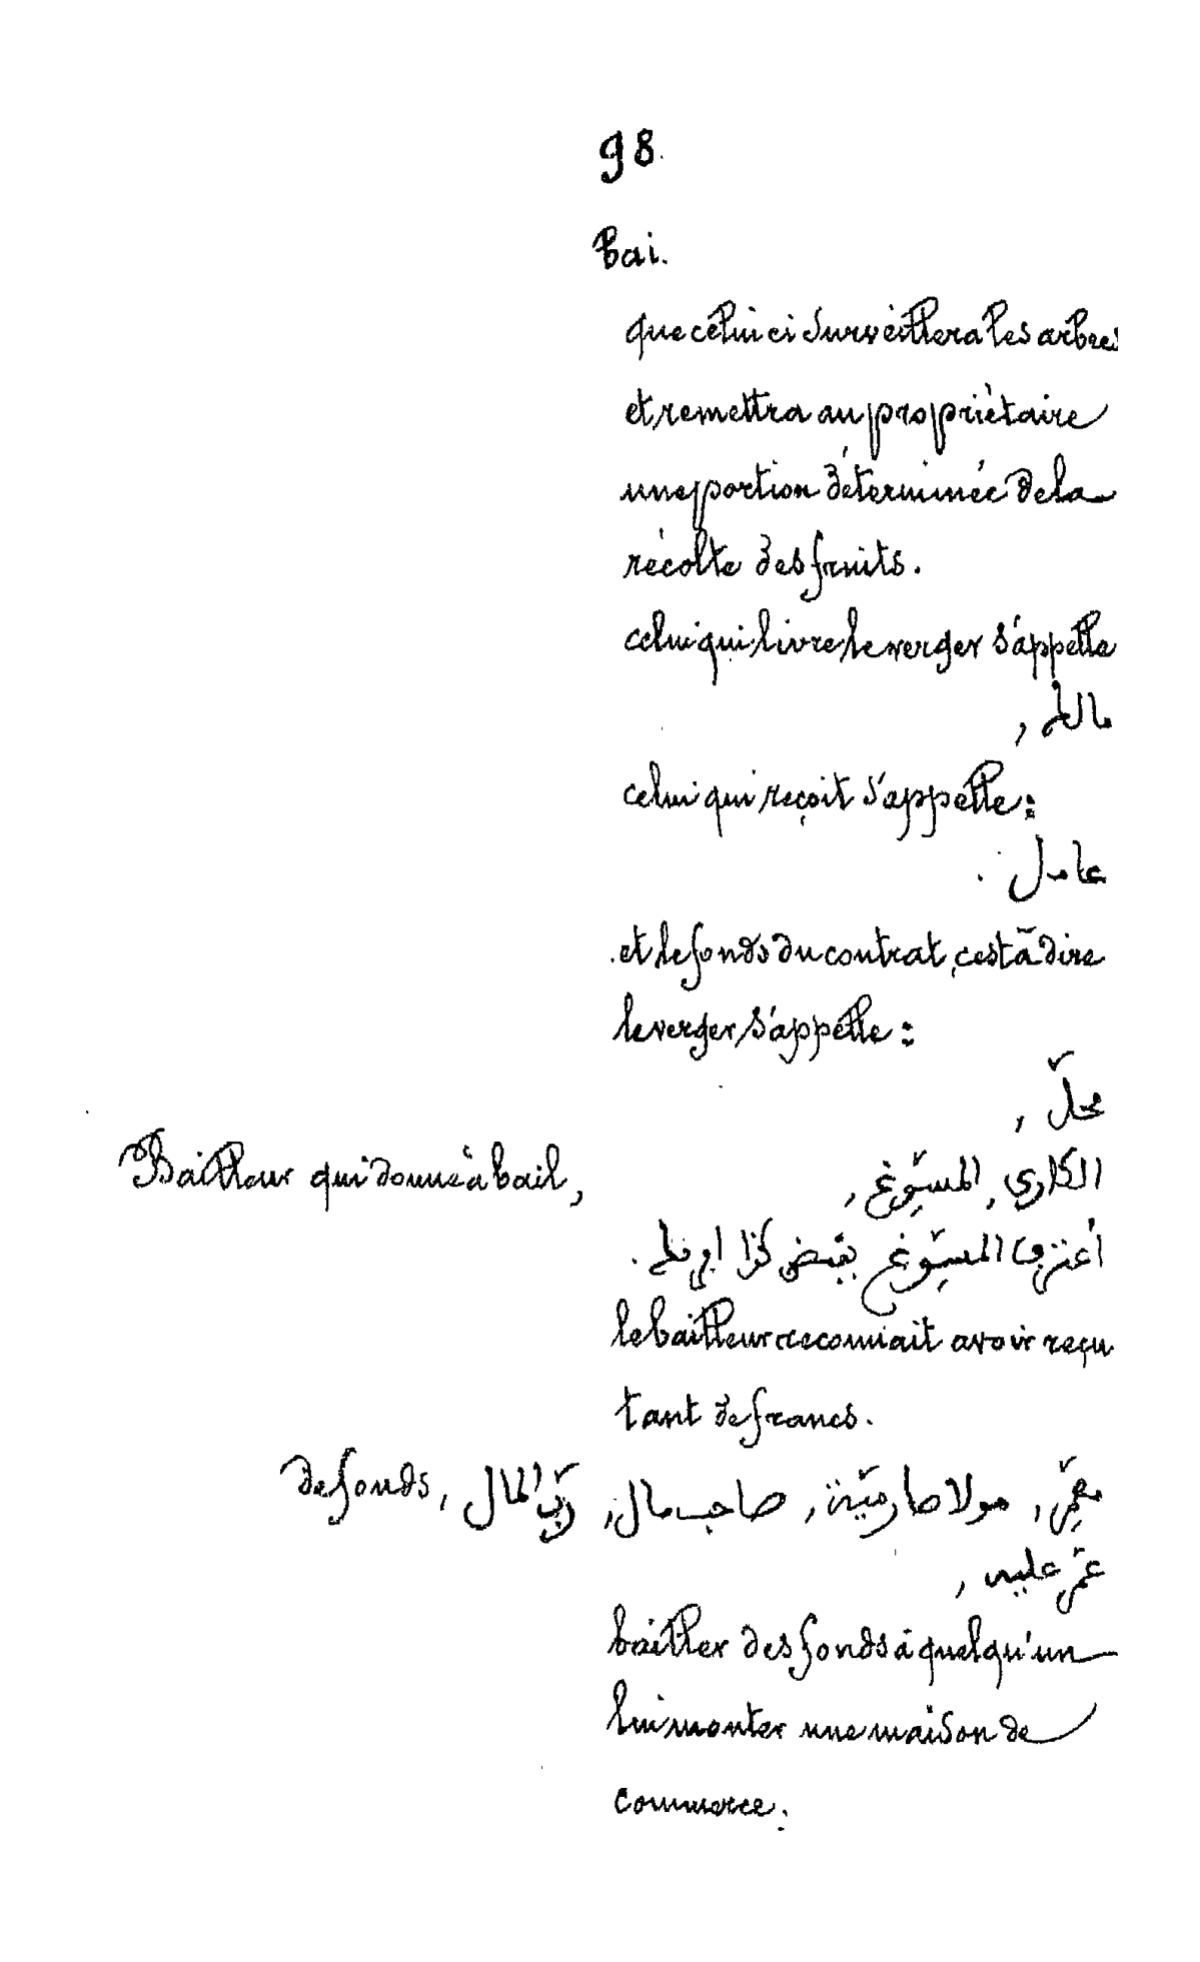 98.
Bai.
que celui ci surveillera les arbres
et remettra au propriétaire
une portion déterminée de la
récolte des fruits.
celui qui livre le verger s'appelle
مالك,
celui qui reçoit s'appelle:
عامل.
et le fonds du contrat, c'est à dire
le verger, s'appelle:
محلّ,
Bailleur qui donne à bail, الكاري, المسوّغ,
أعترف المسوّغ بقبض كذا افرنك.
le bailleur reconnait avoir reçu
tant de francs.
de fonds, ربّ المال, صاحب مال, مولا صارميّة, معمّر,
عمّر عليه,
bailler des fonds à quelqu'un
lui monter une maison de
commerce.